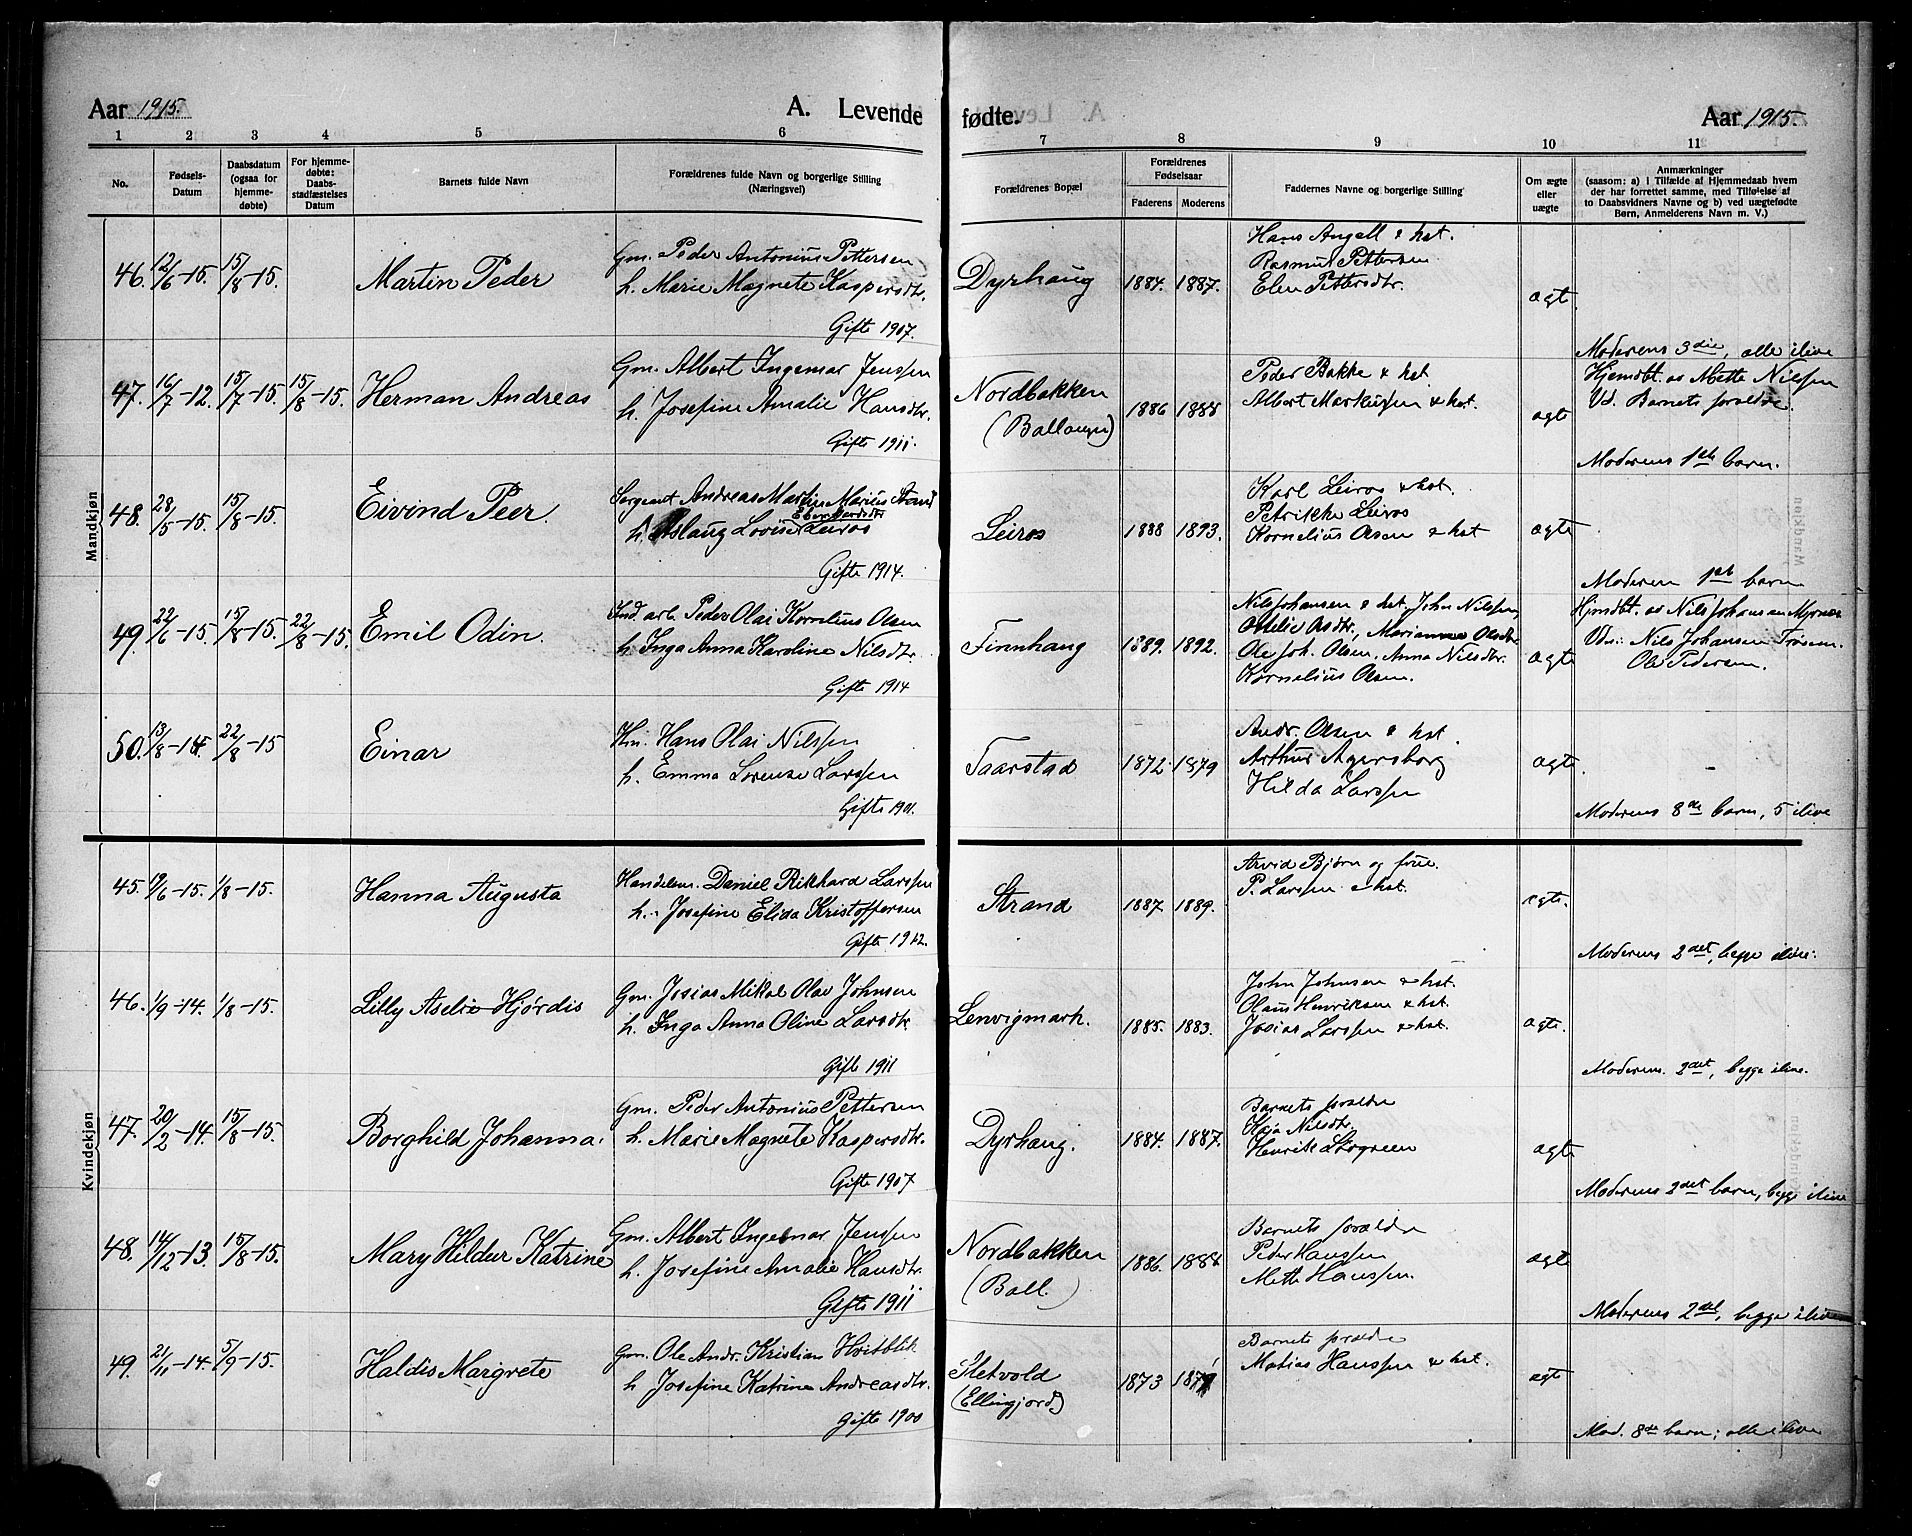 Aar 1915.
A. Levende fødte.
Aar 1915.
1 2 3 4 5 6 7 8 9 10 11
No.
Fødsels-
Datum
Daabsdatum
(ogsaa for
hjemme-
døbte)
For hjemme-
døbte:
Daabs-
stadfæstelses
Datum
Barnets fulde Navn
Forældrenes fulde Navn og borgerlige Stilling
(Næringsvei)
Forældrenes Bopæl
Forældrenes
Fødselsaar
Faderens Moderens
Faddernes Navne og borgerlige Stilling
Om ægte
eller
uægte
Anmærkninger
(saasom: a) i Tilfælde af Hjemmedaab hvem
der har forrettet samme, med Tilføielse af
to Daabsvidners Navne og b) ved uægtefødte
Børn, Anmelderens Navn m. V.)
Mandkjøn
46. 12/6-15. 15/8-15. Martin Peder
Gm. Peder Antonius Pettersen
h. Marie Magnete Kaspersdtr.
Gifte 1907.
Dyrhaug 1884. 1887.
Hans Angell & hst.
Rasmus Pettersen
Elen Pettersdtr.
ægte
Moderens 3die, alle ilive
47. 16/7-12. 15/7-15. 15/8-15. Herman Andreas
Gm. Albert Ingemar Jenssen
h. Josefine Amalie Hansdtr.
Gifte 1911.
Nordbakken
(Ballangen)
1886 1888
Peder Bakke & hst
Albert Markussen & hst.
ægte
Hjemdbt. av Mette Nilsen
Vd. Barnets forældre.
Moderens 1ste barn.
48. 28/5-15. 15/8-15. Eivind Peer.
Sergeant Andreas Martin Marius Strand
h. Aslaug Lovise Leiros
Gifte 1914.
Leiros 1888 1893.
Karl Leiros & hst.
Petrikke Leiros
Kornelius Olsen & hst
ægte
Moderens 1ste barn
49. 22/6-15. 15/8-15. 22/8-15. Emil Odin.
Ind. arb. Peder Olai Kornelius Olsen
h. Inga Anna Karoline Nilsdtr.
Gifte 1914
Finnhaug 1889. 1892.
Nils Johansen & hst, John Nilssen,
Marianna Olsdtr
Ole Joh. Olsen, Anna Nilsdtr.
Kornelius Olsen.
ægte
Hjmdbt. av Nils Johansen
Vdn: Nils Johansen
Ole Pedersen.
50. 13/8-14. 22/8-15 Einar
Hm. Hans Olai Nilssen
h. Emma Lorense Larssen
Gifte 1901.
Taarstad 1872. 1879
Andr. Olsen & hst.
Arthur Agersborg
Hilda Larssen
ægte.
Moderens 8de barn, 5 ilive
Kvindekjøn
45. 19/6-15. 1/8-15. Hanna Augusta
Handelsm. Daniel Rikhard Larssen
h. Josefine Elida Kristoffersen
Gifte 1912.
Strand 1887. 1889.
Arvid Bjørn og frue.
P. Larssen & hst.
ægte.
Moderens 2det, begge ilive.
46. 1/9-14. 1/8-15. Lilly Aselie Hjørdis
Gm. Josias Mikal Olav Johnsen
h. Inga Anna Oline Larsdtr
Gifte 1911
Lenvigmark. 1885. 1883.
John Johnsen & hst.
Olaus Henriksen & hst.
Josias Larssen & hst.
ægte.
Moderens. 2det, begge ilive.
47. 20/2-14. 15/8-15. Borghild Johanna.
Gm. Peder Antonius Pettersen
h. Marie Magnete Kaspersdtr.
Gifte 1907
Dyrhaug. 1884. 1887.
Barnets forældre
Kaja Nilsdtr.
Henrik Storgreen
ægte
Moderens 2det barn, begge ilive
48. 14/12-13. 15/8-15. Mary Hildur Katrine
Gm. Albert Ingemar Jenssen
h. Josefine Amalie Hansdtr.
Gifte 1911
Nordbakken
(Ball.)
1886. 1888
Barnets forældre
Peder Hanssen
Mette Hanssen.
ægte
Moderens 2det, begge ilive
49. 21/11-14. 5/9-15. Haldis Margrete
Gm. Ole Andr. Kristian Hvitblik
h Josefine Katrine Andreasdtr.
Gifte 1900
Sletvold
(Ellingjord)
1873
Barnets forældre
Matias Hanssen & hst.
ægte
Mod. 8de barn; alle ilive